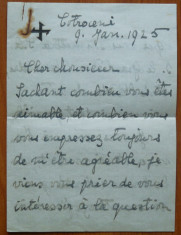 Cotroceni
9. Jan. 1925
Cher Monsieur
Sachant combien vous êtes
aimable, et combien vous
vous empressez toujours
de m'être agréable, je
viens vous prier de vous
intéresser à la question